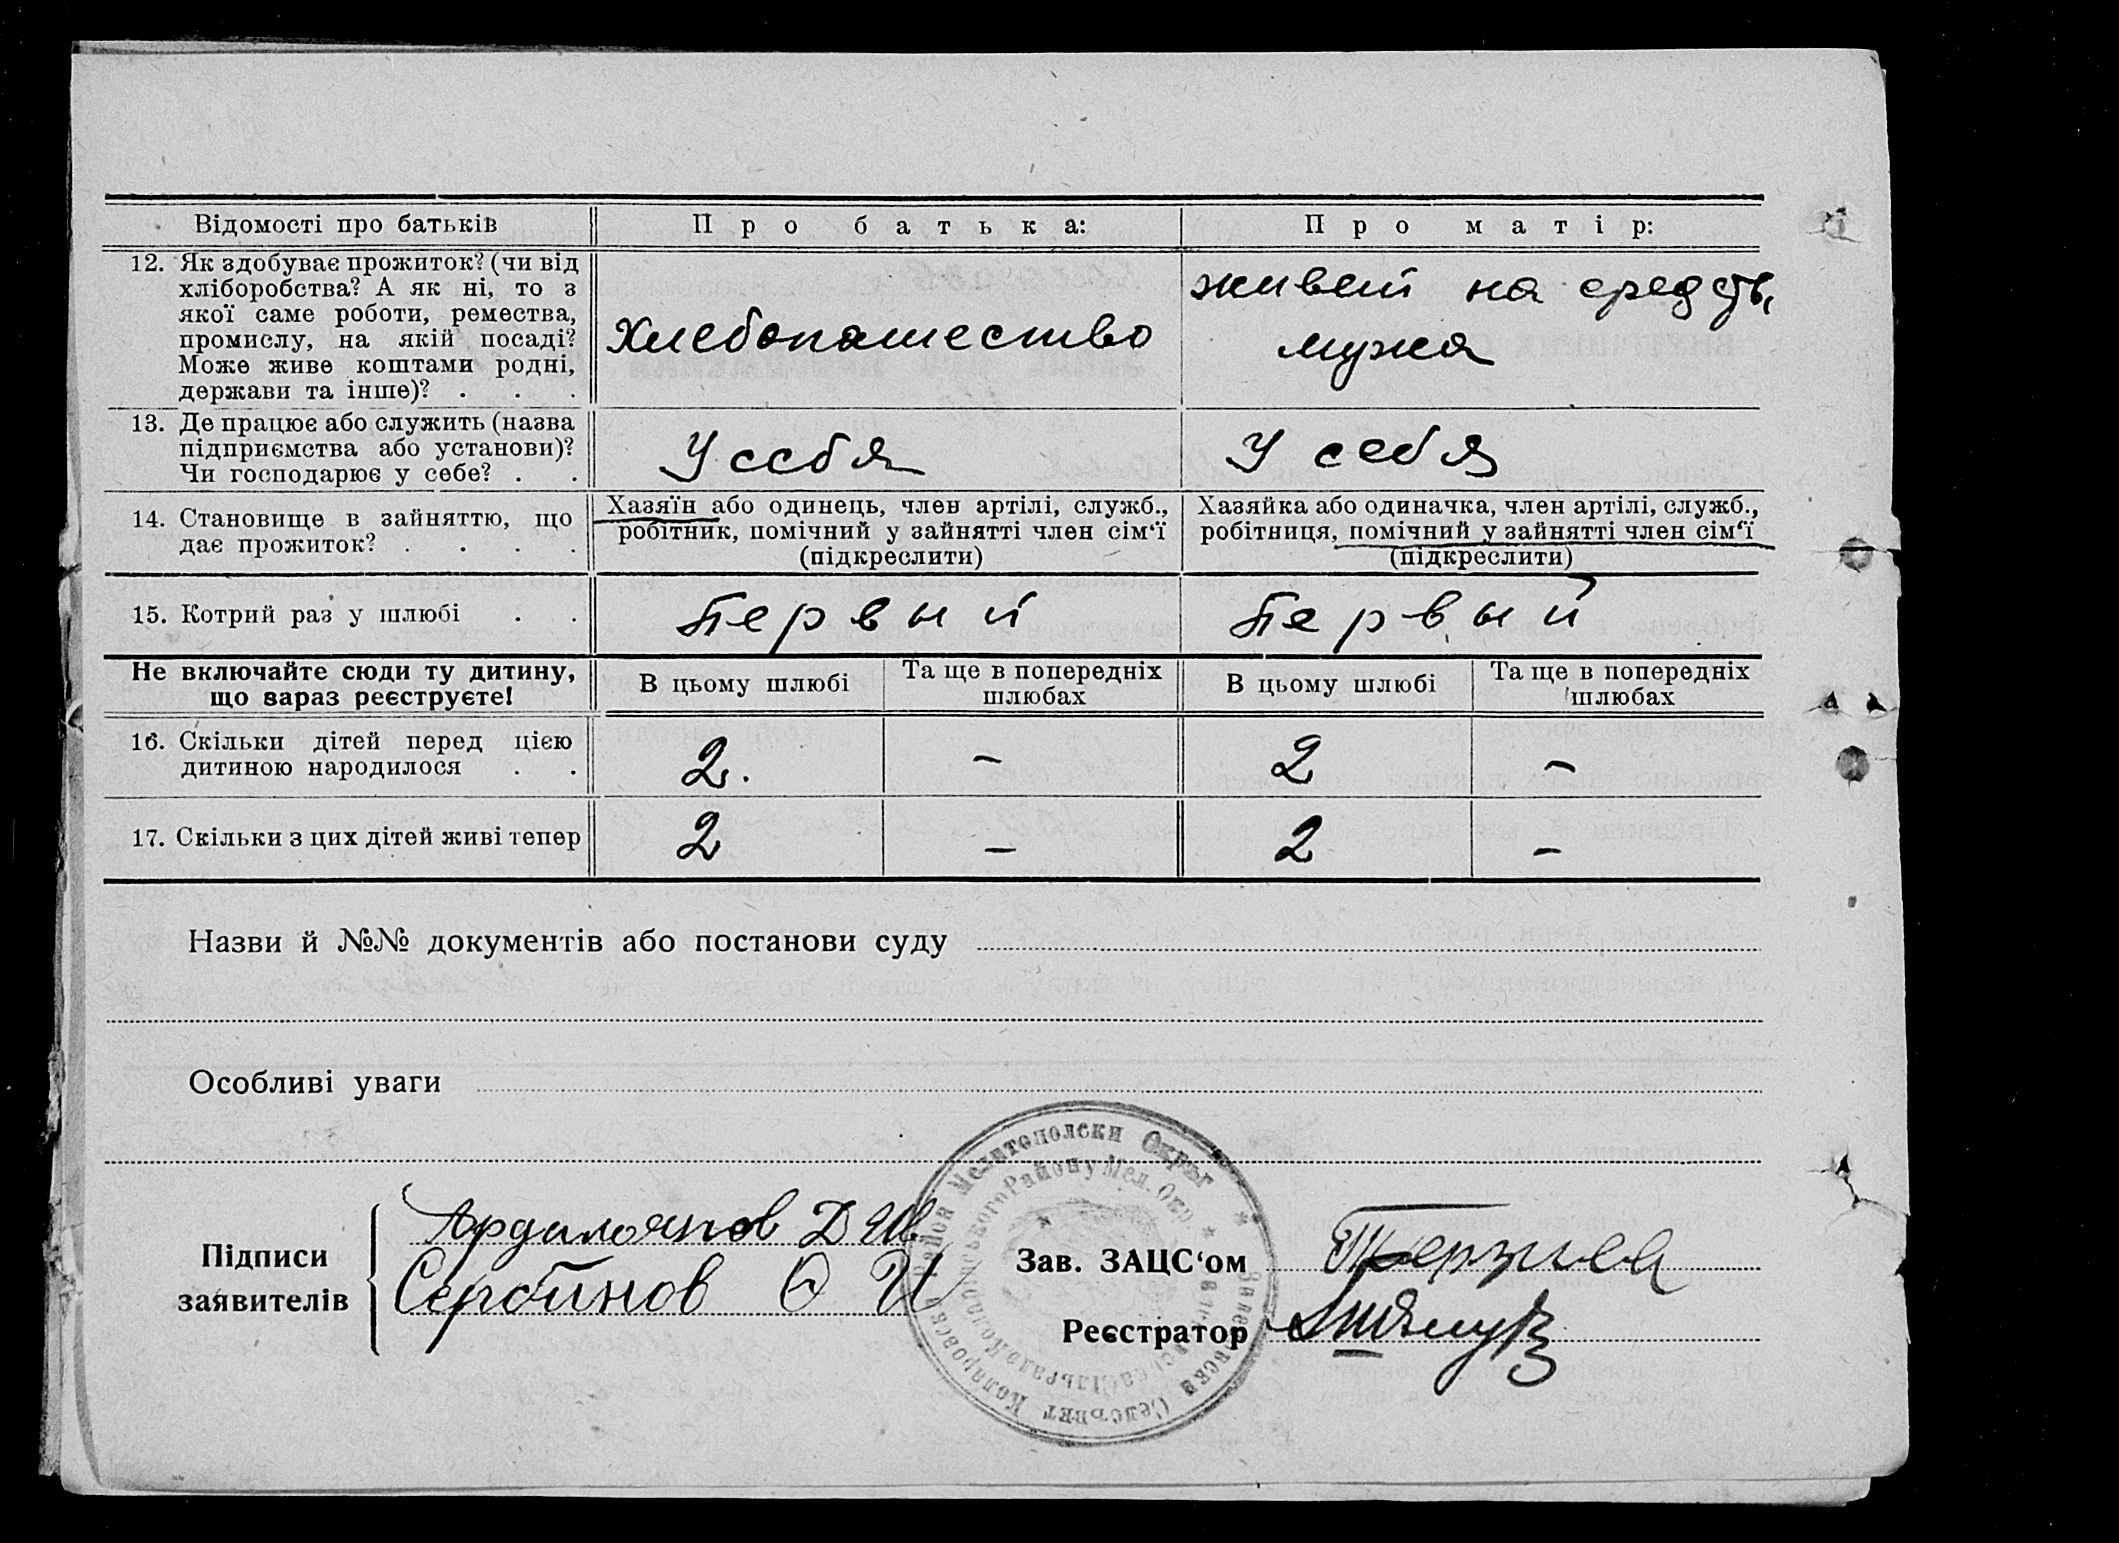 Відомості про батьків
Про батька:
Про матір:
12. Як здобуває прожиток? (чи від
хліборобства? А як ні, то з
якої саме роботи, ремества,
промислу, на якій посаді?
Може живе коштами родні,
держави та інше)? . . .
Хлебопашество
живет на средств,
мужа
13. Де працює або служить (назва
підприємства або установи)?
Чи господарює у себе? . .
У себя
У себя
14. Становище в зайняттю, що
дає прожиток? . . . .
Хазяїн або одинець, член артілі, служб.,
робітник, помічний у зайнятті член сім‘ї
(підкреслити)
Хазяйка або одиначка, член артілі, служб.,
робітниця, помічний у зайнятті член сім‘ї
(підкреслити)
15. Котрий раз у шлюбі . .
Первый
Первый
Не включайте сюди ту дитину,
що зараз реєструєте!
В цьому шлюбі
Та ще в попередніх
шлюбах
В цьому шлюбі
Та ще в попередніх
шлюбах
16. Скільки дітей перед цією
дитиною народилося . .
2.
–
2
–
17. Скільки з цих дітей живі тепер
2
–
2
–
Назви й №№ документів або постанови суду
Особливі уваги
Підписи
заявителів
Сербинов
Зав. ЗАЦС‘ом
Терзиев
Реєстратор
Коларовски Район Мелитополски Окръг
Селсъвет
Району Мел. Окр.